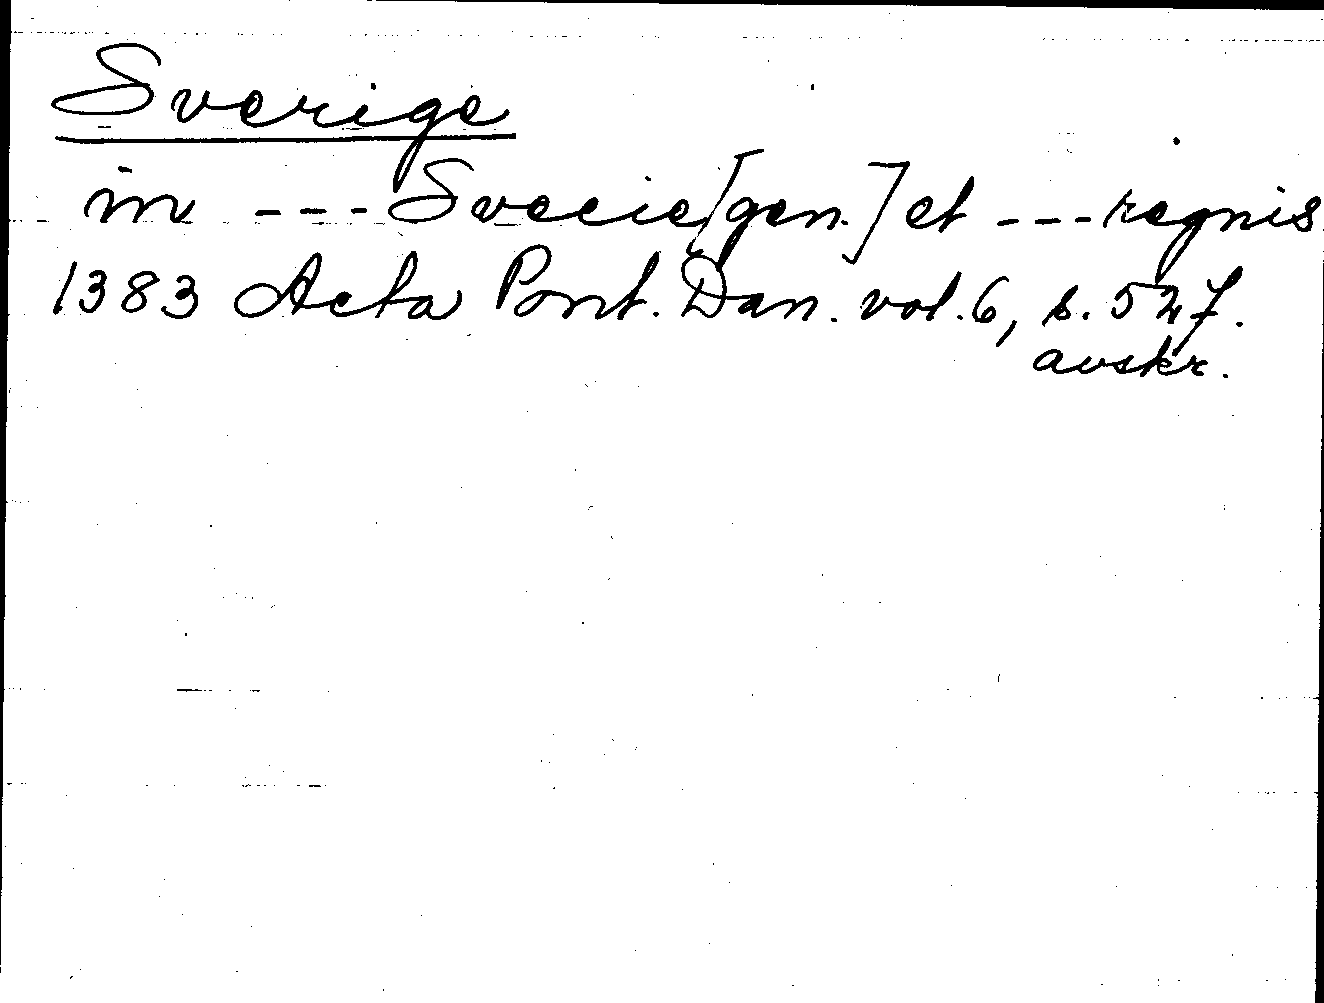 Sverige
in --- Svecie [gen.] et --- regnis
1383 Acta Pont. Dan. vol. 6, s. 527.
avskr.